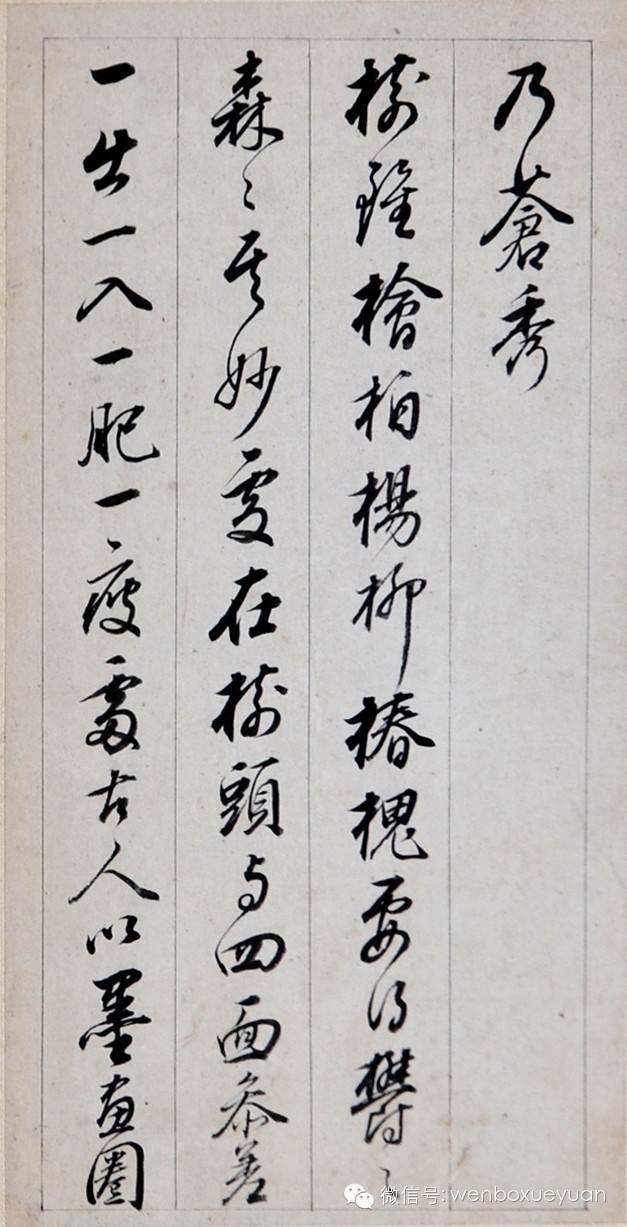 乃蒼秀
樹雖檜柏楊柳椿槐要得鬱〻
森〻其妙處在樹頭与四面参差
一出一入一肥一瘦處古人以墨畫圈
微信号: wenboxueyuan